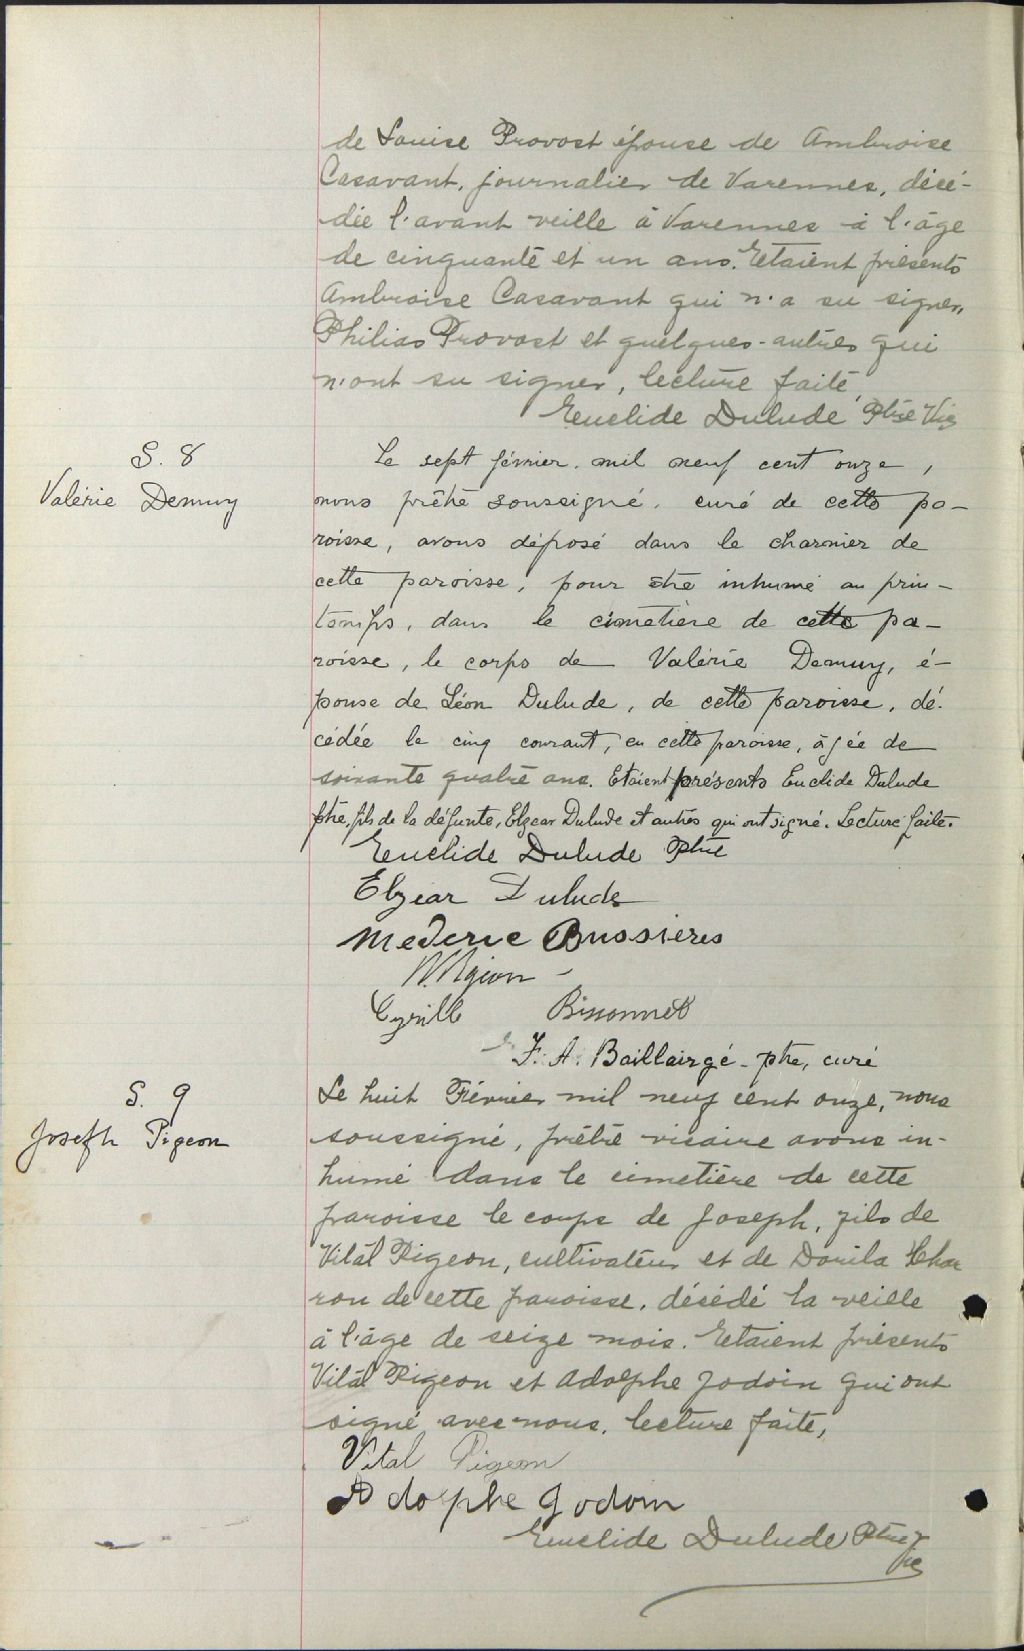 de Louise Provost épouse de Ambroise
Casavant, journalier de Varennes, décé-
dée l'avant veille à Varennes à l'âge
de cinquante et un ans. Etaient présents
Ambroise Casavant qui n'a su signer,
Philias Provost et quelques-autres qui
n'ont su signer, lecture faite,
Euclide Dulude Ptre Vic
S. 8
Valérie Demuy
Le sept février, mil neuf cent onze,
nous prêtre soussigné, curé de cette pa-
roisse, avons déposé dans le charnier de
cette paroisse, pour être inhumé au prin-
temps, dans le cimetière de cette pa-
roisse, le corps de Valérie Demuy, é-
pouse de Léon Dulude, de cette paroisse, dé-
cédée le cinq courant, en cette paroisse, âgée de
soixante quatre ans. Etaient présents Euclide Dulude
ptre, fils de la défunte, Elzear Dulude et autres qui ont signé. Lecture faite.
Euclide Dulude Ptre
Elzear Dulude
Mederic Bussieres
Cyrille Bissonnet
F. A. Baillairgé - ptre, curé
S. 9
Joseph Pigeon
Le huit Février mil neuf cent onze, nous
soussigné, prêtre vicaire avons in-
humé dans le cimetière de cette
paroisse le corps de Joseph, fils de
Vital Pigeon, cultivateur et de Dorila Char
ron de cette paroisse, désédé la veille
à l'âge de seize mois. Etaient présents
Vital Pigeon et Adolphe Jodoin qui ont
signé avec nous, lecture faite,
Vital Pigeon
Adolphe Jodoin
Euclide Dulude Ptre Vic